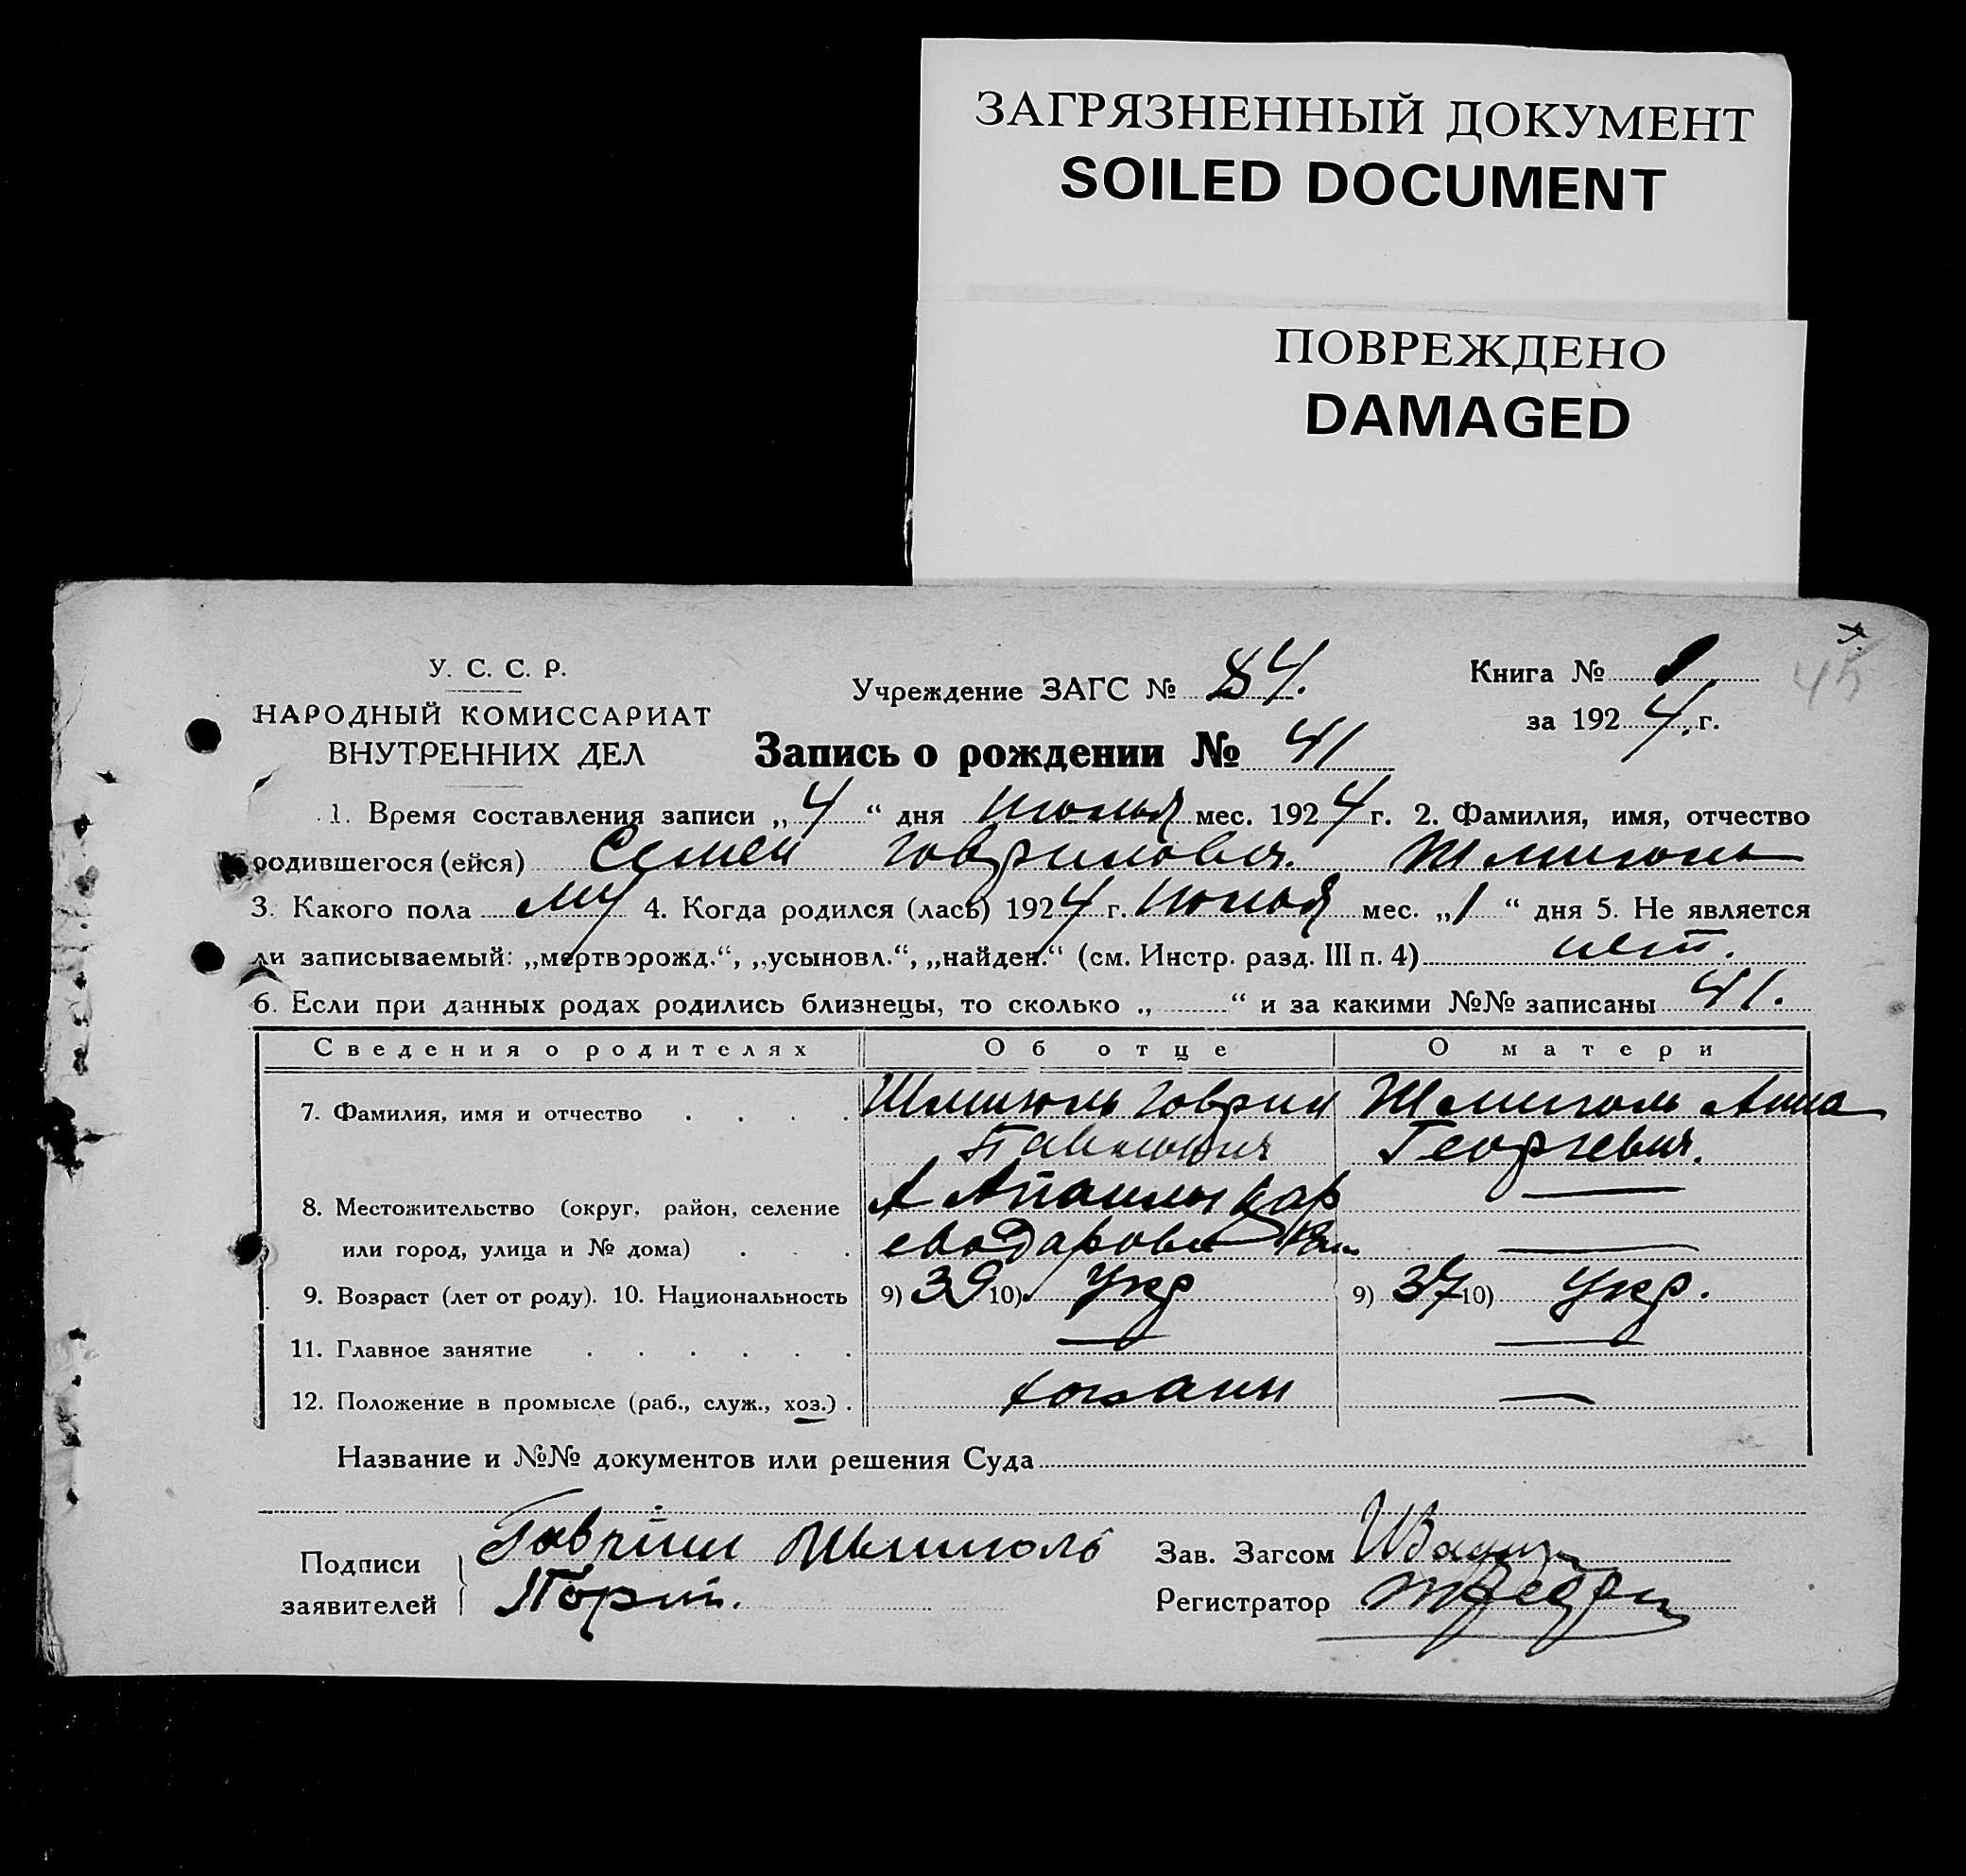 ЗАГРЯЗНЕННЫЙ ДОКУМЕНТ
SOILED DOCUMENT
ПОВРЕЖДЕНО
DAMAGED
У. С. С. Р.
НАРОДНЫЙ КОМИССАРИАТ
ВНУТРЕННИХ ДЕЛ
Учреждение ЗАГС № 84.
Книга № 1
45
за 1924 г.
Запись о рождении № 41
1. Время составления записи „4“ дня июля мес. 1924 г. 2. Фамилия, имя, отчество
родившегося (ейся) Семен Говрилович.
3. Какого пола му 4. Когда родился (лась) 1924 г. Июля мес. „1“ дня 5. Не является
ли записываемый: „мертворожд.“, „усыновл.“, „найден.“ (см. Инстр. разд. III п. 4) нет.
6. Если при данных родах родились близнецы, то сколько „ “ и за какими №№ записаны 41.
Сведения о родителях Об отце О матери
7. Фамилия, имя и отчество Говрил Анна
Павлович Георгевич.
8. Местожительство (округ, район, селение —
или город, улица и № дома) —
9. Возраст (лет от роду). 10. Национальность 9) 39 10) Укр 9) 37 10) Укр.
11. Главное занятие — —
12. Положение в промысле (раб., служ., хоз.) —
Название и №№ документов или решения Суда
Подписи заявителей Зав. Загсом
Регистратор